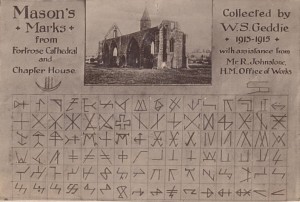 Mason's
Marks
from
Fortrose Cathedral
and
Chapter House.
Collected by
W.S. Geddie
1913-1915
with assistance from
Mr. R. Johnstone,
H.M. Office of Works